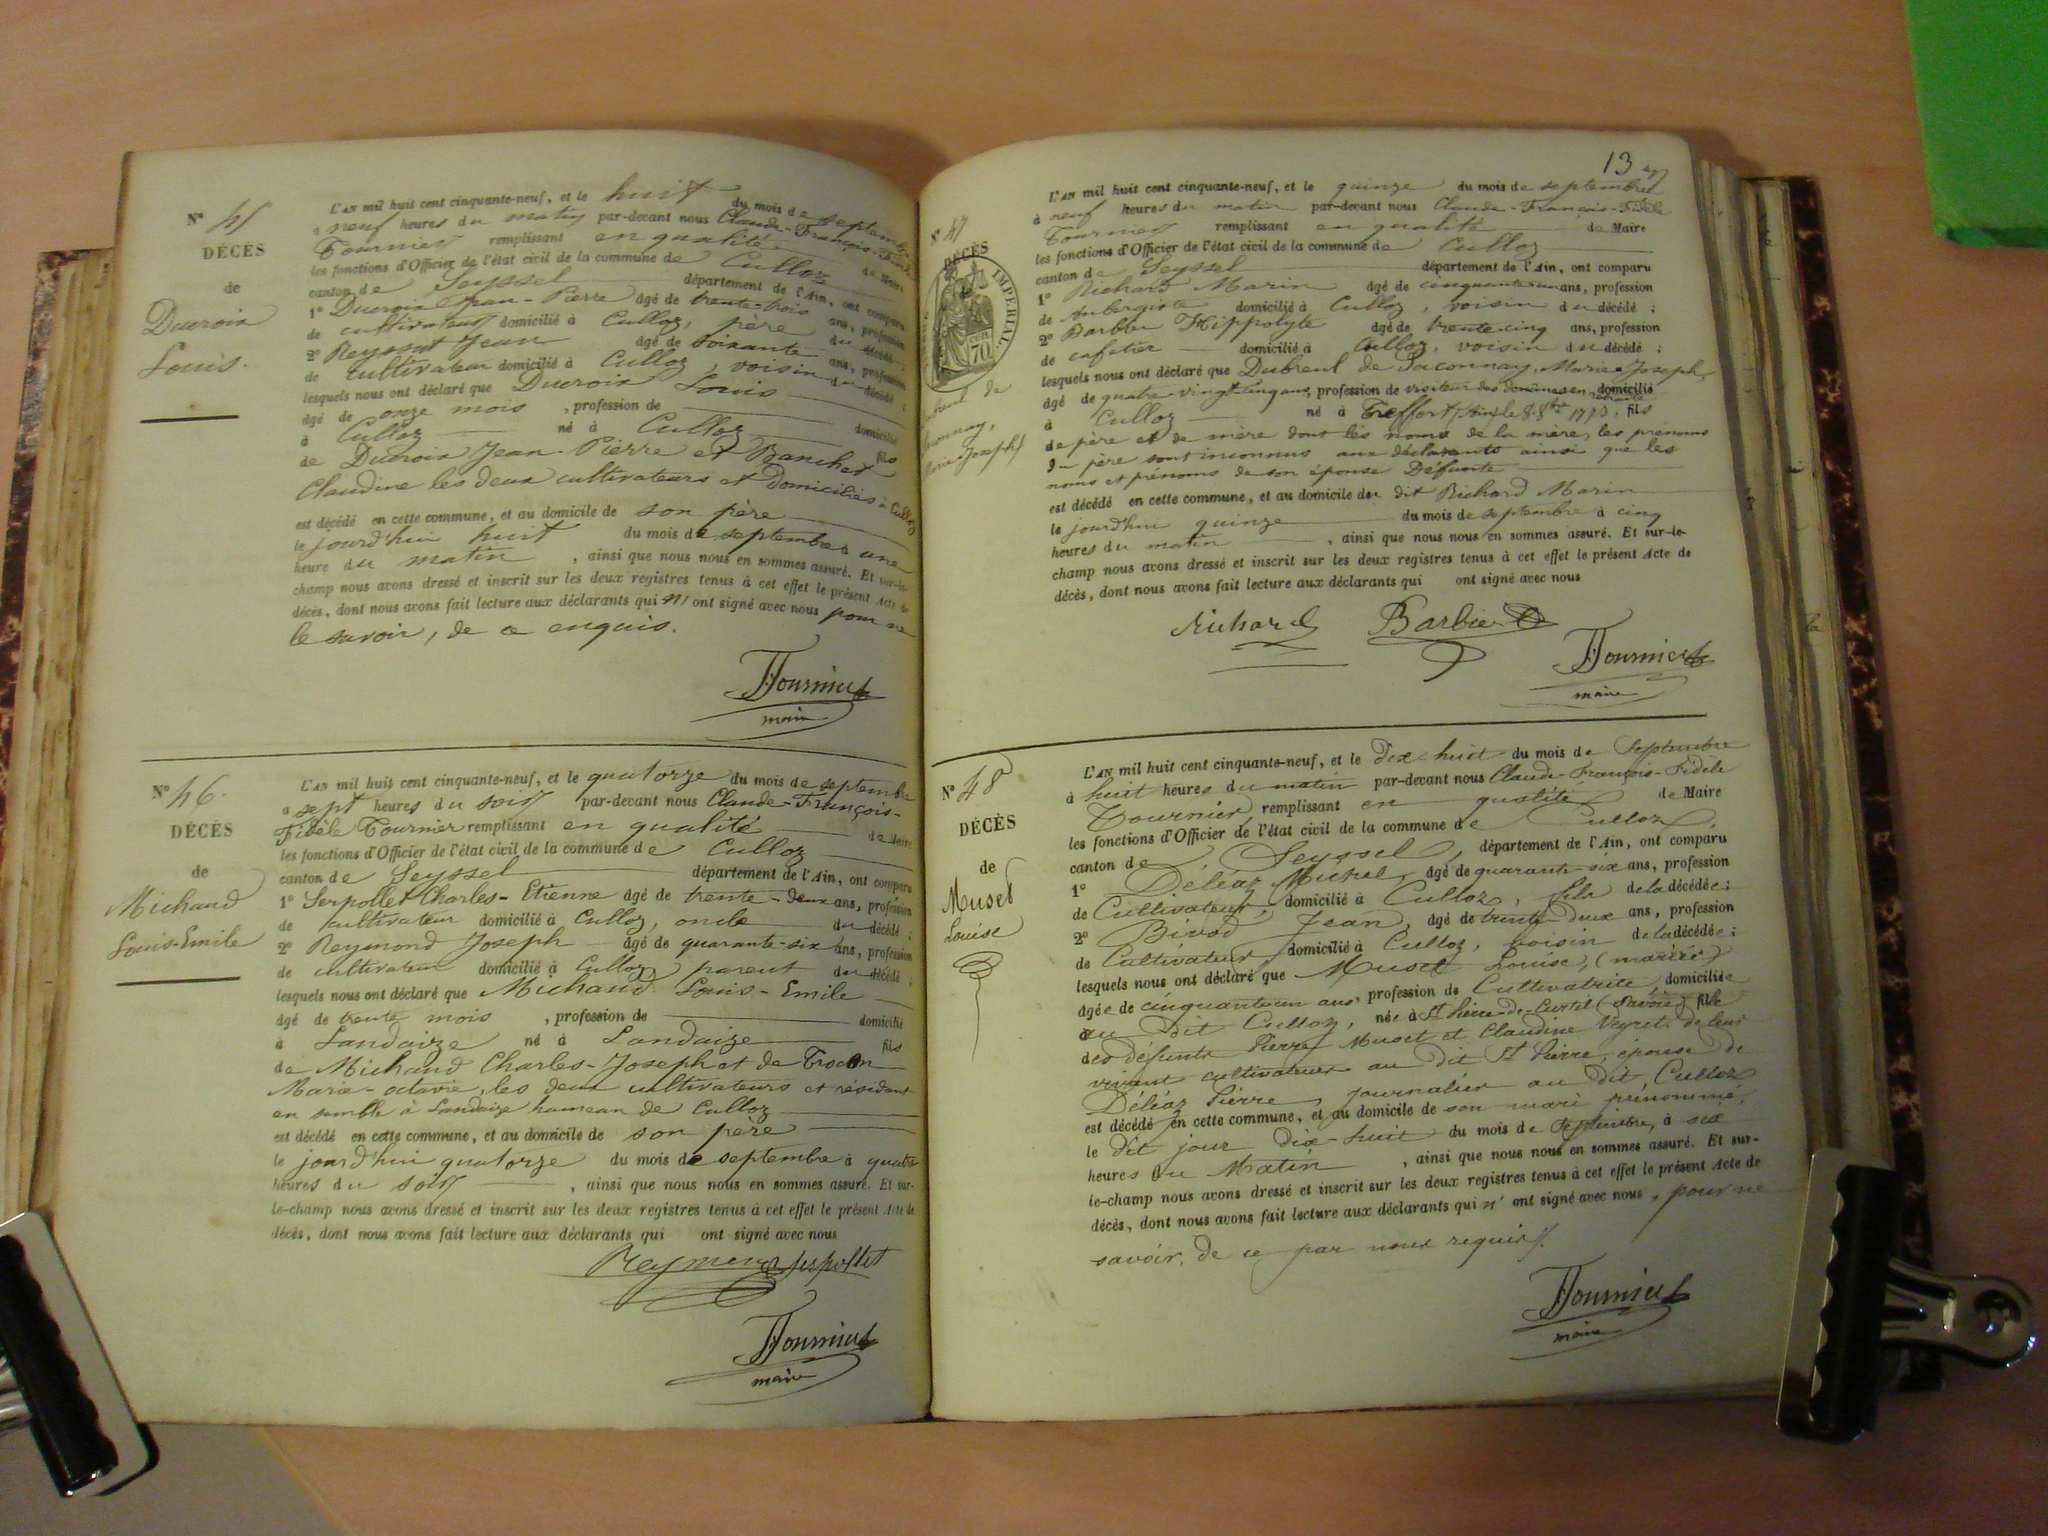 N° 45
DÉCÈS
de
Ducroix
Louis.
L'AN mil huit cent cinquante-neuf, et le huit du mois de septembre
à neuf heures du matin par-devant nous Claude-François-Fidèle
Tournier remplissant en qualité de Maire
les fonctions d'Officier de l'état civil de la commune de Culloz
canton de Seyssel département de l'Ain, ont comparu
1° Ducroix Jean-Pierre âgé de trente-trois ans, profession
de cultivateur domicilié à Culloz, père du décédé;
2° Reyssat Jean âgé de soixante ans, profession
de cultivateur domicilié à Culloz, voisin du décédé;
lesquels nous ont déclaré que Ducroix Louis
âgé de onze mois, profession de domicilié
à Culloz né à Culloz fils
de Ducroix Jean-Pierre et Banchet
Claudine les deux cultivateurs et domiciliés à Culloz
est décédé en cette commune, et au domicile de son père
le jourd'hui huit du mois de septembre à une
heure du matin, ainsi que nous nous en sommes assuré. Et sur-le-
champ nous avons dressé et inscrit sur les deux registres tenus à cet effet le présent Acte de
décès, dont nous avons fait lecture aux déclarants qui n' ont signé avec nous pour ne
le savoir, de ce enquis.
Tournier
maire
N° 46.
DÉCÈS
de
Michaud
Louis-Emile
L'AN mil huit cent cinquante-neuf, et le quatorze du mois de septembre
à sept heures du soir par-devant nous Claude-François-
Fidèle Tournier remplissant en qualité de Maire
les fonctions d'Officier de l'état civil de la commune de Culloz
canton de Seyssel département de l'Ain, ont comparu
1° Serpollet Charles-Etienne âgé de trente-deux ans, profession
de cultivateur domicilié à Culloz, oncle du décédé;
2° Reymond Joseph âgé de quarante-six ans, profession
de cultivateur domicilié à Culloz, parent du décédé;
lesquels nous ont déclaré que Michaud Louis-Emile
âgé de trente mois, profession de domicilié
à Landaize né à Landaize fils
de Michaud Charles-Joseph et de Trocon
Marie-octavie, les deux cultivateurs et résidant
en semble à Landaize hameau de Culloz
est décédé en cette commune, et au domicile de son père
le jourd'hui quatorze du mois de septembre à quatre
heures du soir, ainsi que nous nous en sommes assuré. Et sur-
le-champ nous avons dressé et inscrit sur les deux registres tenus à cet effet le présent Acte de
décès, dont nous avons fait lecture aux déclarants qui ont signé avec nous
Reymond Serpollet
Tournier
maire
13
N° 47
DÉCÈS
IMPERIAL
70
Dubreul de
Saconnay,
Marie-Joseph
L'AN mil huit cent cinquante-neuf, et le quinze du mois de septembre
à neuf heures du matin par-devant nous Claude-François-Fidèle
Tournier remplissant en qualité de Maire
les fonctions d'Officier de l'état civil de la commune de Culloz
canton de Seyssel département de l'Ain, ont comparu
1° Richard Marin âgé de cinquante-un ans, profession
de Aubergiste domicilié à Culloz, voisin du décédé;
2° Barbier Hippolyte âgé de trente-cinq ans, profession
de cafetier domicilié à Culloz, voisin du décédé;
lesquels nous ont déclaré que Dubreul de Saconnay, Marie-Joseph,
âgé de quatre vingt-cinq ans, profession de visiteur des douanes en retraite domicilié
à Culloz né à Treffort (Ain) le 8 8bre 1773, fils
de père et de mère dont les noms de la mère, les prénoms
du père sont inconnus aux déclarants ainsi que les
noms et prénoms de son épouse Défunte
est décédé en cette commune, et au domicile du dit Richard Marin
le jourd'hui quinze du mois de septembre à cinq
heures du matin, ainsi que nous nous en sommes assuré. Et sur-le-
champ nous avons dressé et inscrit sur les deux registres tenus à cet effet le présent Acte de
décès, dont nous avons fait lecture aux déclarants qui ont signé avec nous
Richard Barbier
Tournier
maire
N° 48
DÉCÈS
de
Muset
Louise
L'AN mil huit cent cinquante-neuf, et le Dix huit du mois de Septembre
à huit heures du matin par-devant nous Claude-François-Fidèle
Tournier, remplissant en qualité de Maire
les fonctions d'Officier de l'état civil de la commune de Culloz,
canton de Seyssel, département de l'Ain, ont comparu
1° Déléaz Michel, âgé de quarante-six ans, profession
de Cultivateur, domicilié à Culloz, fils de la décédée;
2° Bivod Jean, âgé de trente deux ans, profession
de Cultivateur domicilié à Culloz, voisin de la décédée;
lesquels nous ont déclaré que Muset Louise, (mariée)
âgée de cinquante un ans, profession de Cultivatrite, domiciliée
au dit Culloz, née à St Pierre-de-Curtil (Savoie) fille
des défunts Pierre Muset et Claudine Veyret de leur
vivant cultivateurs au dit St Pierre, épouse de
Déléaz Pierre, journalier au dit Culloz
est décédé en cette commune, et au domicile de son mari prénommé,
le dit jour dix-huit du mois de Septembre, à six
heures du Matin, ainsi que nous nous en sommes assuré. Et sur-
le-champ nous avons dressé et inscrit sur les deux registres tenus à cet effet le présent Acte de
décès, dont nous avons fait lecture aux déclarants qui n' ont signé avec nous, pour ne
savoir, de ce par nous requis.
Tournier
maire